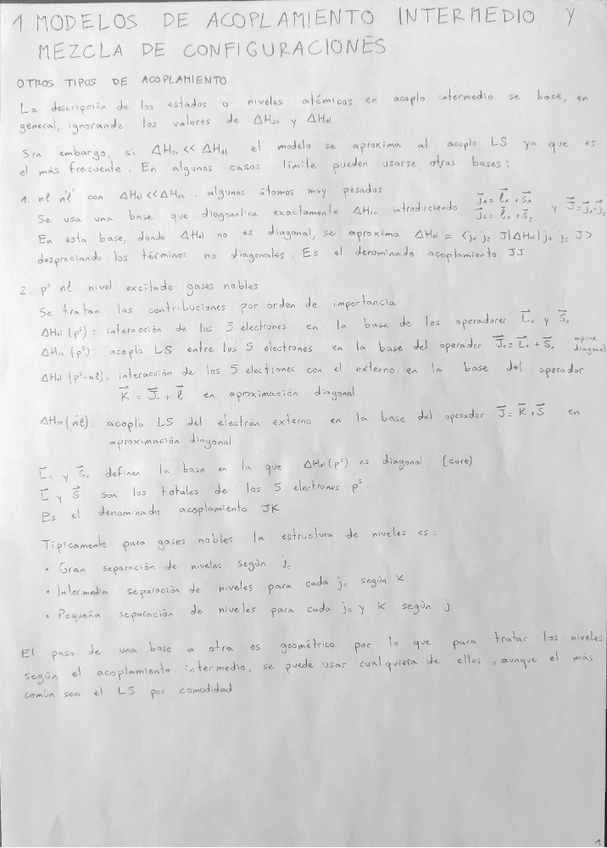 1 MODELOS DE ACOPLAMIENTO INTERMEDIO Y
MEZCLA DE CONFIGURACIONES
OTROS TIPOS DE ACOPLAMIENTO
La descripción de los estados o niveles atómicos en acoplo intermedio se hace, en
general, ignorando los valores de ΔH y ΔH
Sin embargo, si ΔH << ΔH el modelo se aproxima al acoplo LS ya que es
el más frecuente. En algunos casos límite pueden usarse otras bases:
1. nl n'l' con ΔHel << ΔHso. algunos átomos muy pesados
Se usa una base que diagonalice exactamente ΔHso introduciendo j⃗₁ = l⃗₁ + s⃗₁ j⃗₂ = l⃗₂ + s⃗₂ y J⃗ = j⃗₁ + j⃗₂
En esta base, donde ΔHel no es diagonal, se aproxima ΔHel = <j₁ j₂ J|ΔHel|j₁ j₂ J>
despreciando los términos no diagonales. Es el denominado acoplamiento JJ
2. p⁵ nl nivel excitado: gases nobles
Se tratan las contribuciones por orden de importancia
ΔHel (p⁵): interacción de los 5 electrones en la base de los operadores L⃗c y S⃗c
ΔHso (p⁵): acoplo LS entre los 5 electrones en la base del operador J⃗c = L⃗c + S⃗c aprox. diagonal
ΔHel (p⁵-nl): interacción de los 5 electrones con el externo en la base del operador
K⃗ = J⃗c + l⃗ en aproximación diagonal
ΔHso (nl): acoplo LS del electrón externo en la base del operador J⃗ = K⃗ + S⃗ en
aproximación diagonal
L⃗c y S⃗c definen la base en la que ΔHel (p⁵) es diagonal (core)
L⃗ y S⃗ son los totales de los 5 electrones p⁵
Es el denominado acoplamiento JK
Típicamente para gases nobles la estructura de niveles es:
• Gran separación de niveles según jc
• Intermedia separación de niveles para cada jc según K
• Pequeña separación de niveles para cada jc y K según j
El paso de una base a otra es geométrico por lo que para tratar los niveles
según el acoplamiento intermedio, se puede usar cualquiera de ellos, aunque el más
común sea el LS por comodidad
1